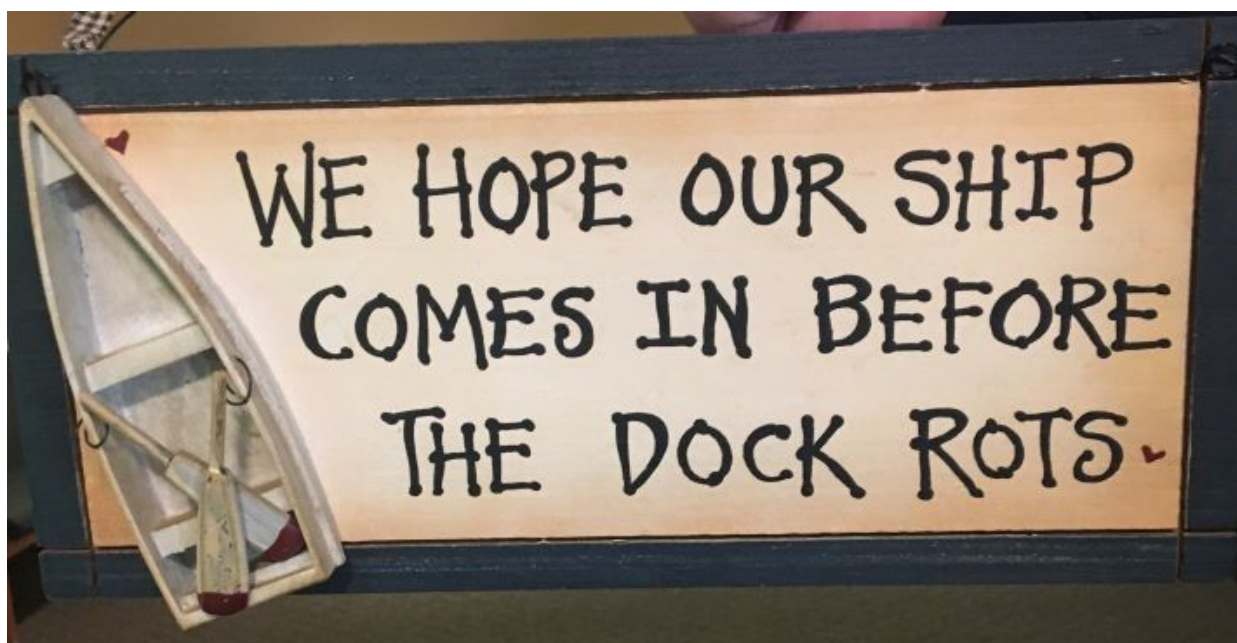 WE HOPE OUR SHIP
COMES IN BEFORE
THE DOCK ROTS